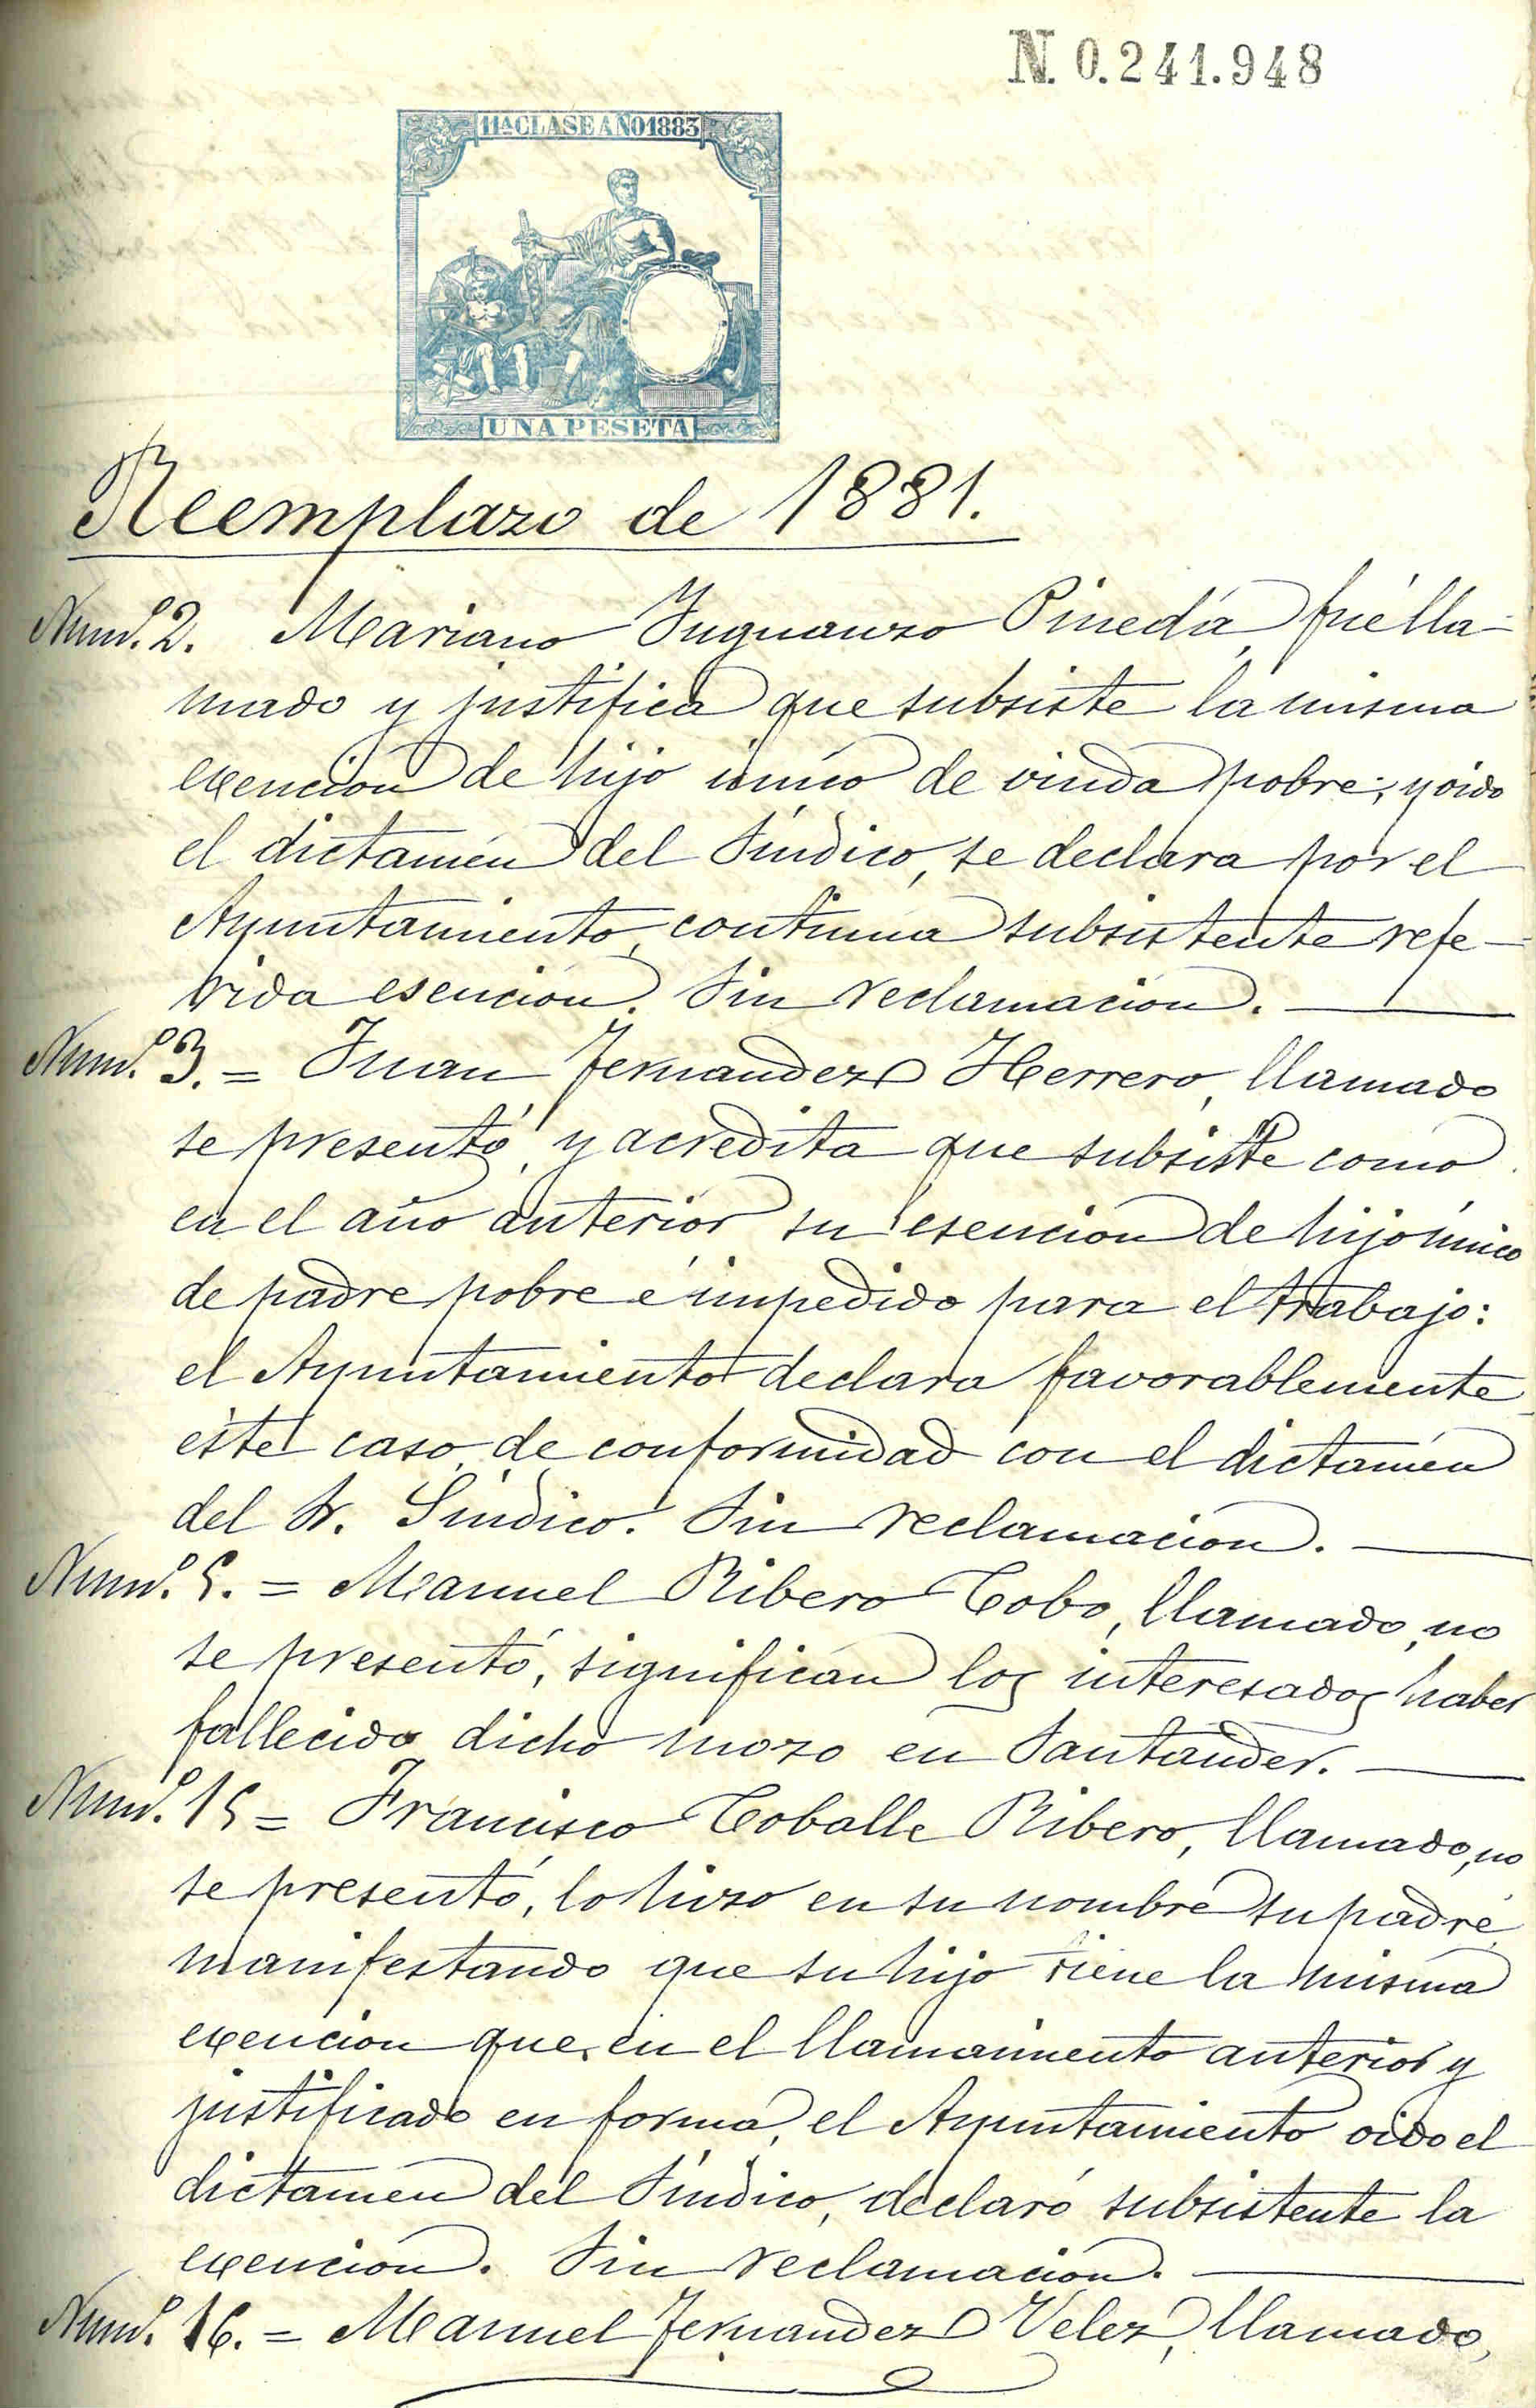 N. 0.241.948
11ª CLASE AÑO 1883
UNA PESETA
Reemplazo de 1881.
Num.º 2. Mariano Inguanzo Pineda, fué lla-
mado y justifica que subsiste la misma
exención de hijo único de viuda pobre; y oido
el dictamén del Síndico, se declara por el
Ayuntamiento, continua subsistente refe-
rida esención. Sin reclamación.
Num.º 3. = Juan Fernandez Herrero, llamado
se presentó, y acredita que subsiste como
en el año anterior su esención de hijo único
de padre pobre é impedido para el trabajo:
el Ayuntamiento declara favorablemente
éste caso, de conformidad con el dictamén
del Sr. Síndico. Sin reclamación.
Num.º 5. = Manuel Ribero Cobo, llamado, no
se presentó, significan los interesados haber
fallecido dicho mozo en Santander.
Num.º 15 = Francisco Coballe Ribero, llamado, no
se presentó, lo hizo en su nombre su padre,
manifestando que su hijo tiene la misma
exención que en el llamamiento anterior y
justificado en forma, el Ayuntamiento oido el
dictamen del Síndico, declaró subsistente la
exención. Sin reclamación.
Num.º 16. = Manuel Fernandez Velez, llamado,